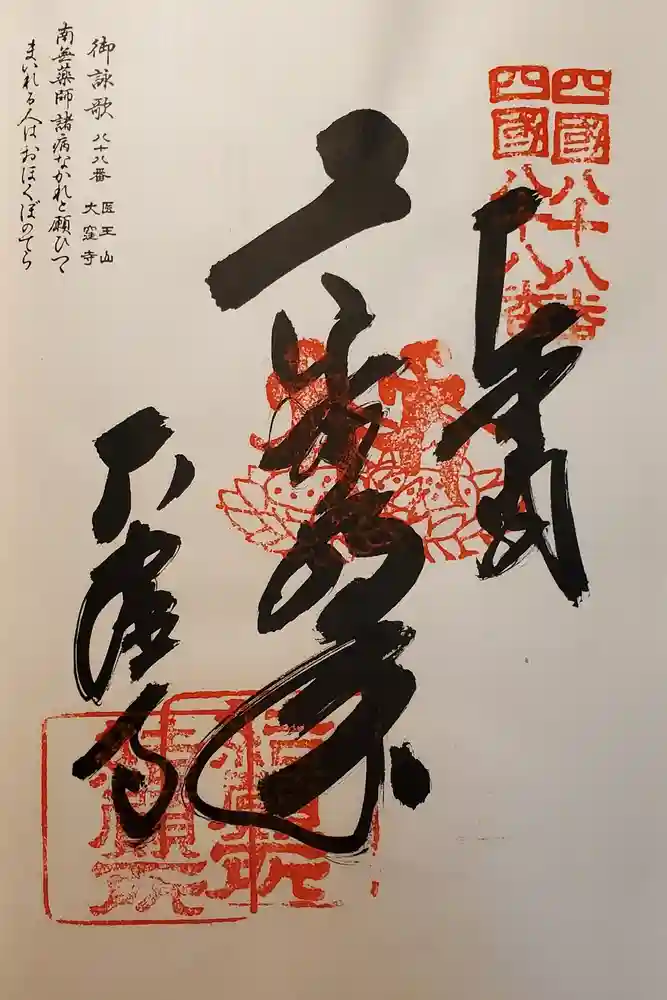 四國八十八番
四國八十八番
大窪寺
結願所
結願所
御詠歌 八十八番 医王山
大窪寺
南無薬師諸病なかれと願ひつゝ
まいれる人はおほくぼのてら